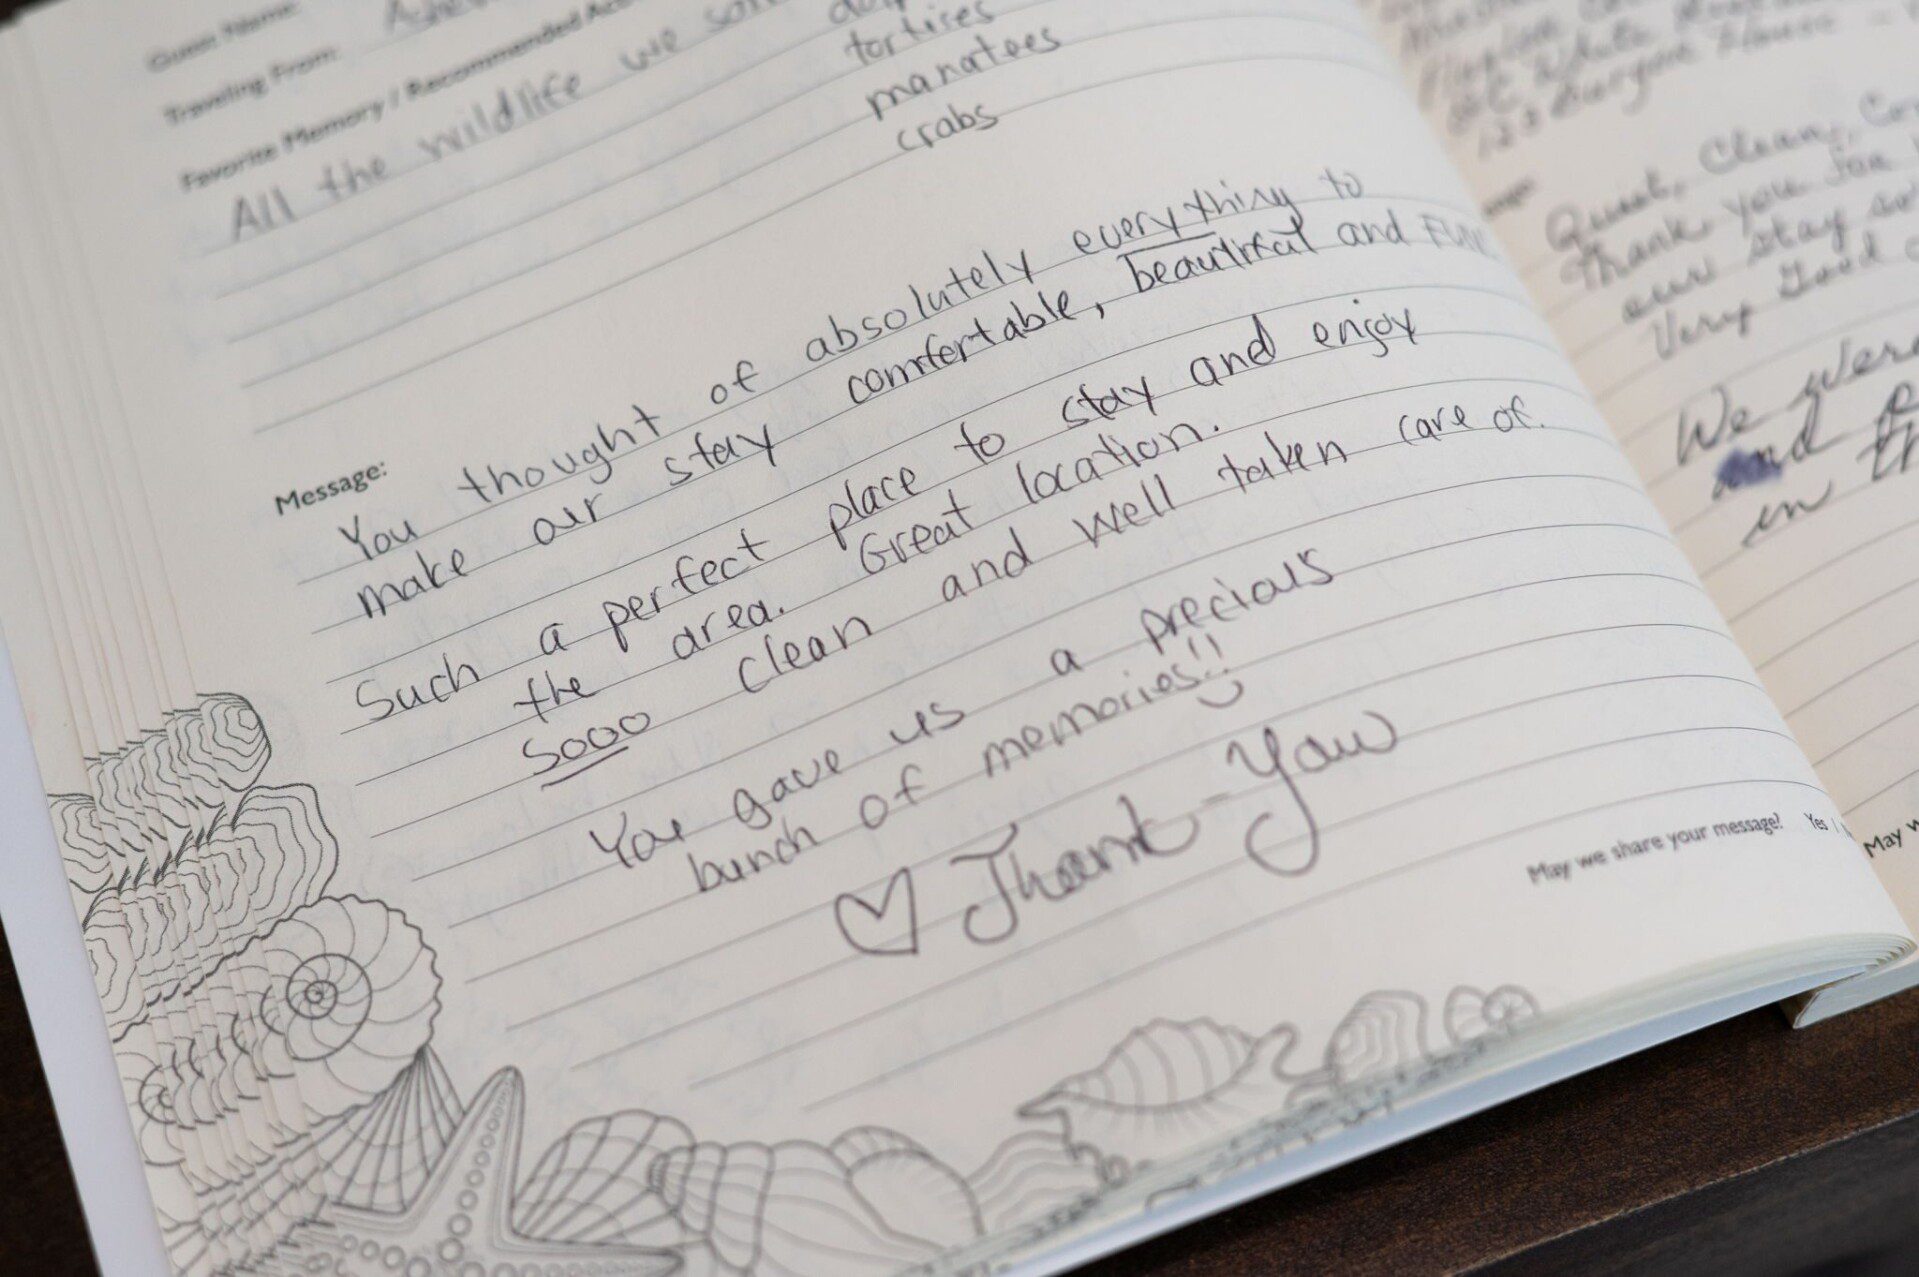 Guest Name:
Traveling From:
Favorite Memory / Recommended
All the wildlife we
tortises
manatees
crabs
Message:
You thought of absolutely everything to
make our stay comfortable, beautiful and FUN
Such a perfect place to stay and enjoy
the area. Great location.
Sooo clean and well taken care of.
You gave us a precious
bunch of memories!!
Thank-You
May we share your message? Yes |
Quiet, Clean,
Thank you for
our stay
Very Good
We were
and
in
May